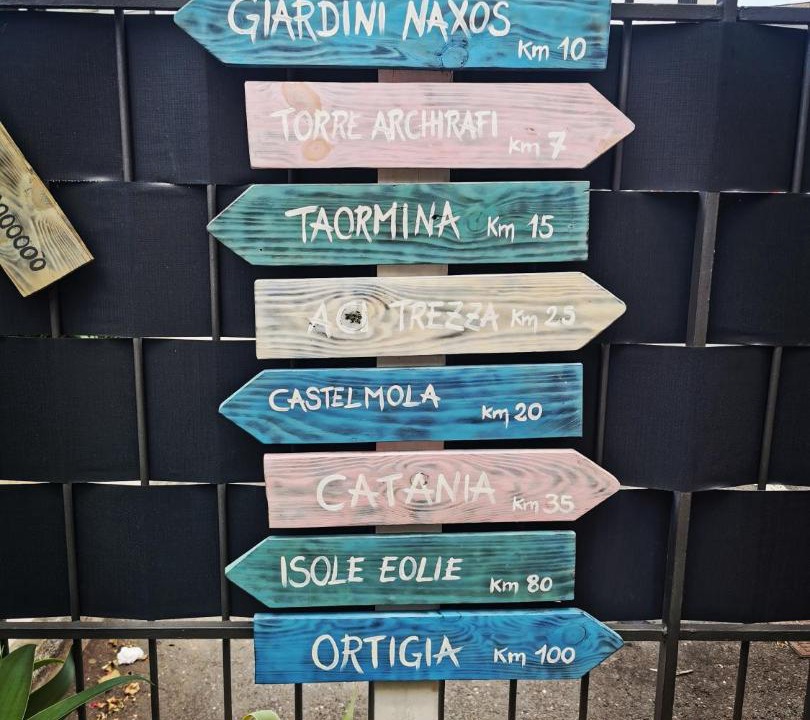 GIARDINI NAXOS Km 10
TORRE ARCHIRAFI Km 7
TAORMINA Km 15
ACI TREZZA Km 25
CASTELMOLA Km 20
CATANIA Km 35
ISOLE EOLIE Km 80
ORTIGIA Km 100